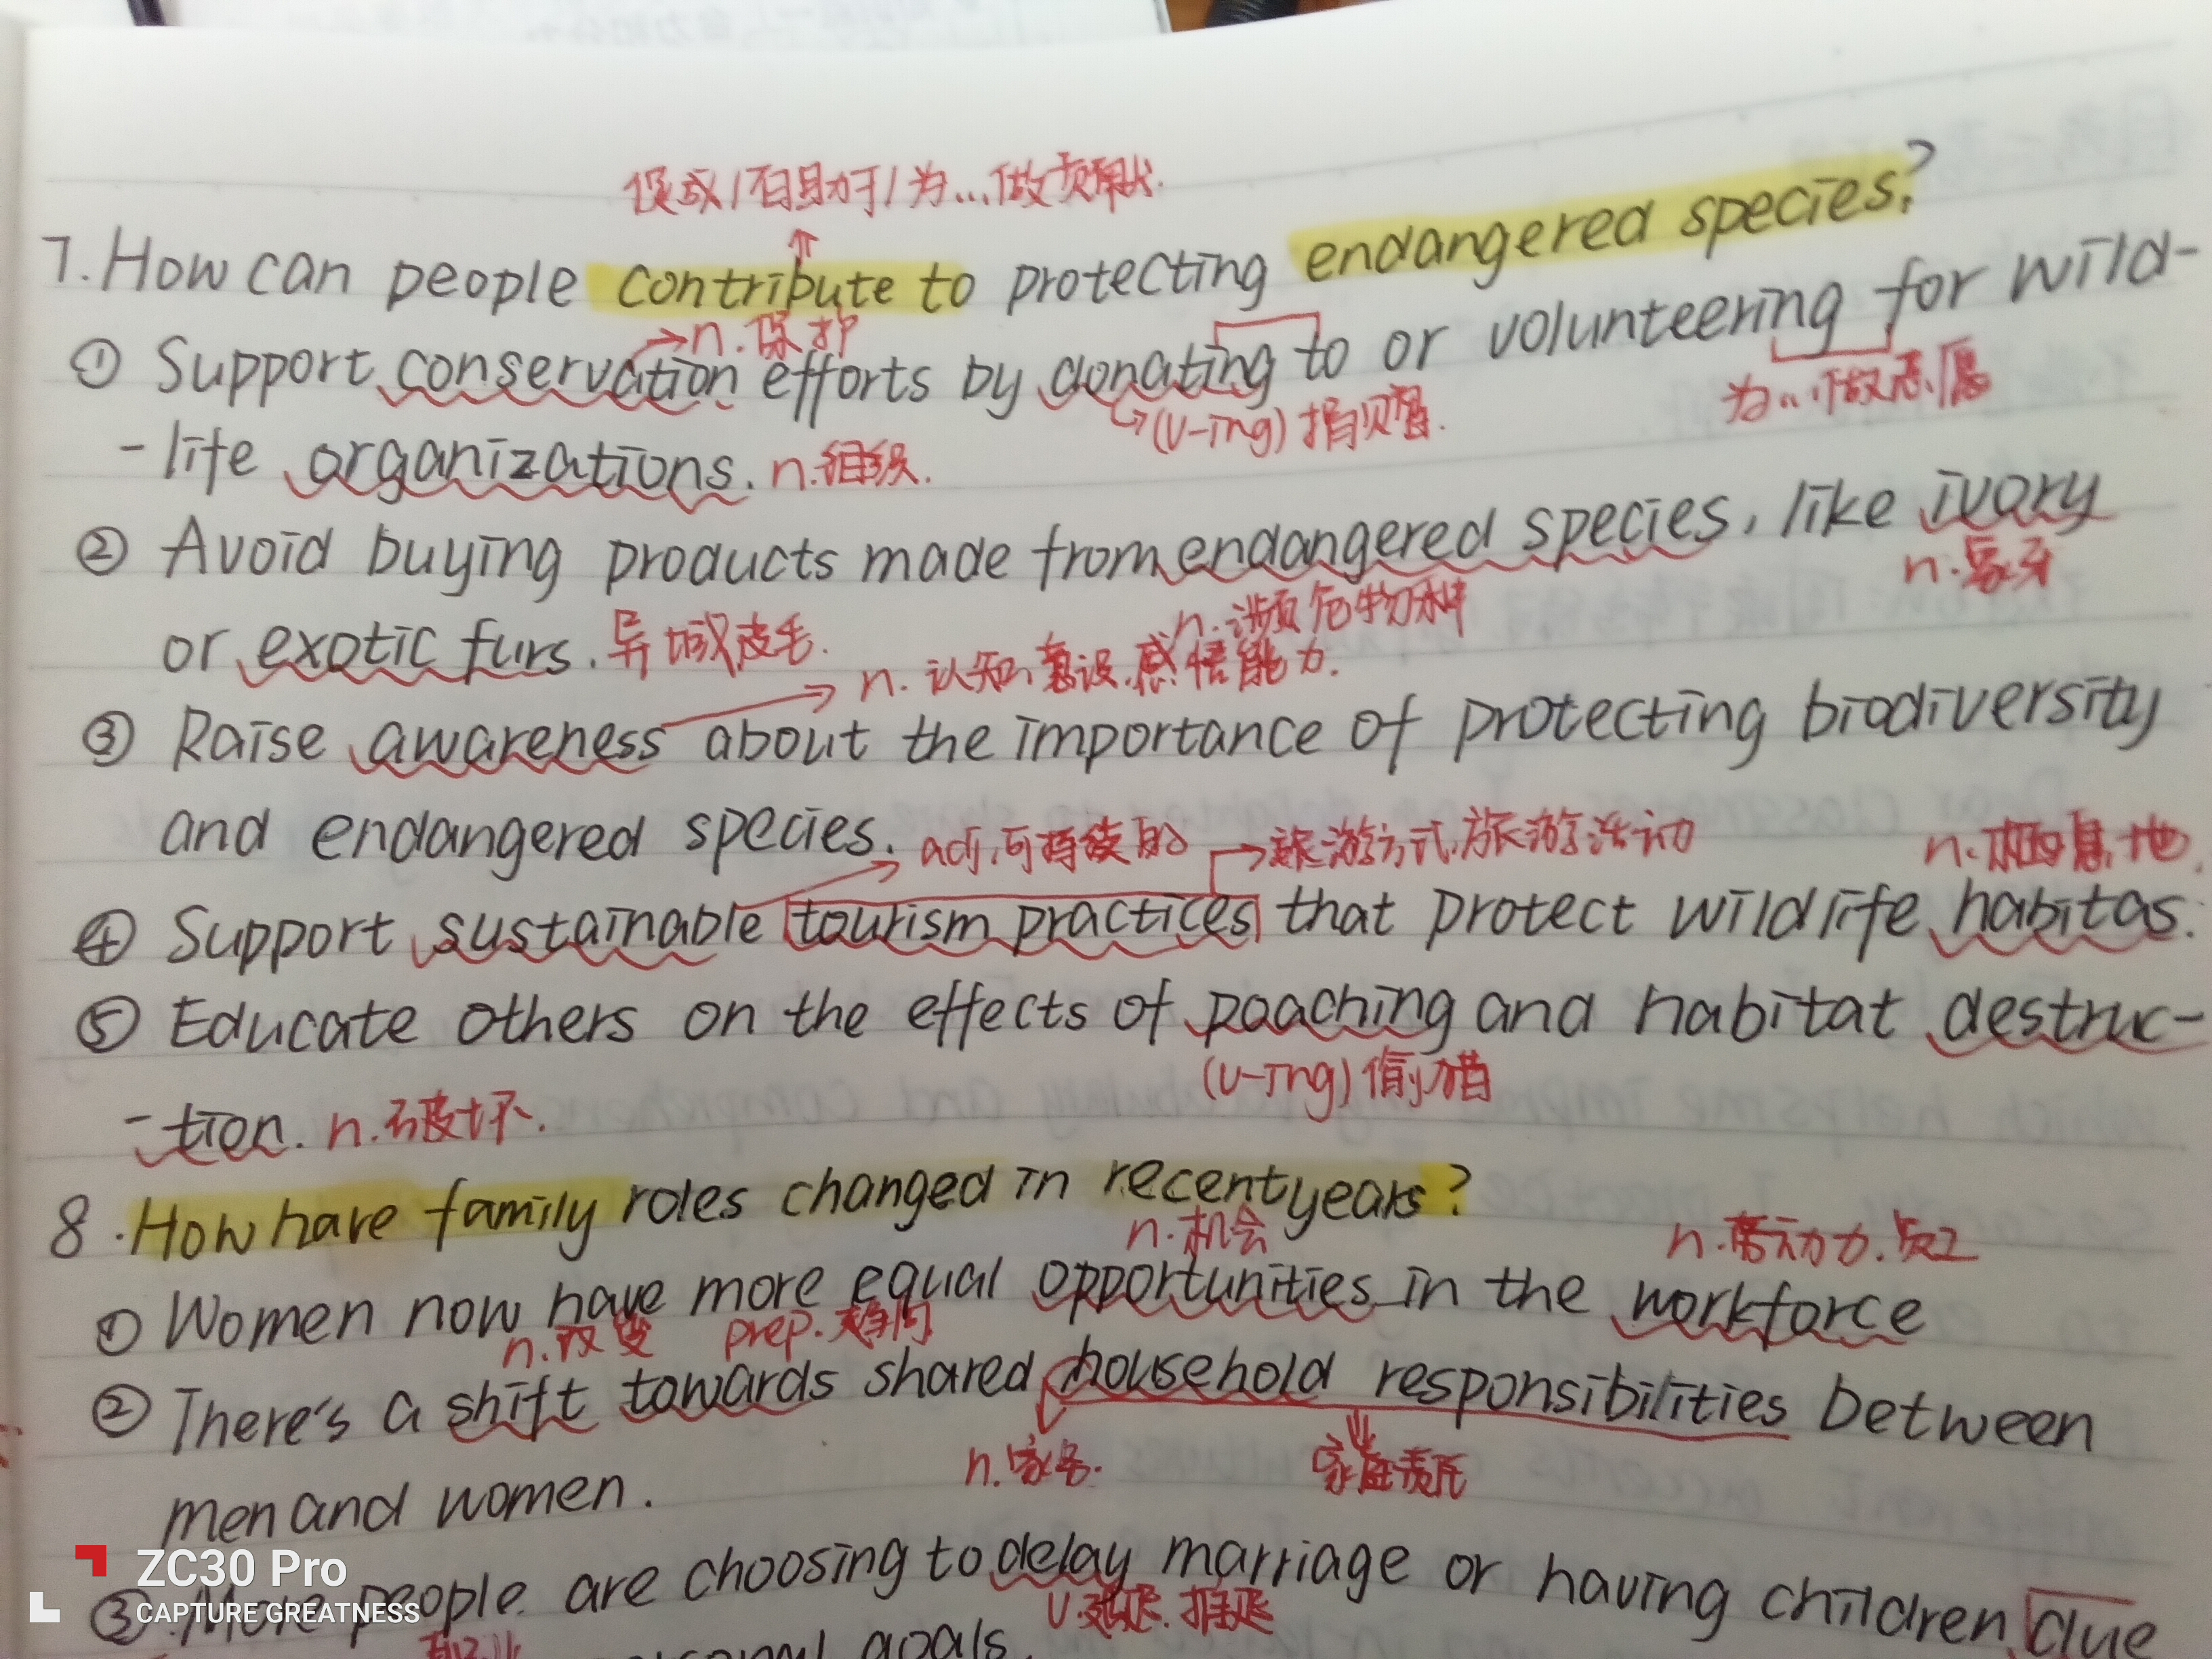 促成/有助于/为...做贡献.
7. How can people contribute to protecting endangered species?
→n.保护
① Support conservation efforts by donating to or volunteering for wild-
↳(v-ing) 捐赠.
为...做志愿
-life organizations. n.组织.
② Avoid buying products made from endangered species, like ivory
n.濒危物种
n.象牙
or exotic furs. 异域皮毛.
n. 认知,意识.感悟能力.
③ Raise awareness about the importance of protecting biodiversity
and endangered species.
adj.可持续的
旅游方式,旅游活动
n.栖息地.
④ Support sustainable tourism practices that protect wildlife habitas.
⑤ Educate others on the effects of poaching and habitat destruc-
(v-ing) 偷猎
-tion. n.破坏.
8. How have family roles changed in recent years?
n.机会
n.劳动力.员工
① Women now have more equal opportunities in the workforce
n.改变
prep.趋向
② There's a shift towards shared household responsibilities between
n.家务.
家庭责任
men and women.
③ More people are choosing to delay marriage or having children due
v.延迟.推延
goals.
ZC30 Pro
CAPTURE GREATNESS